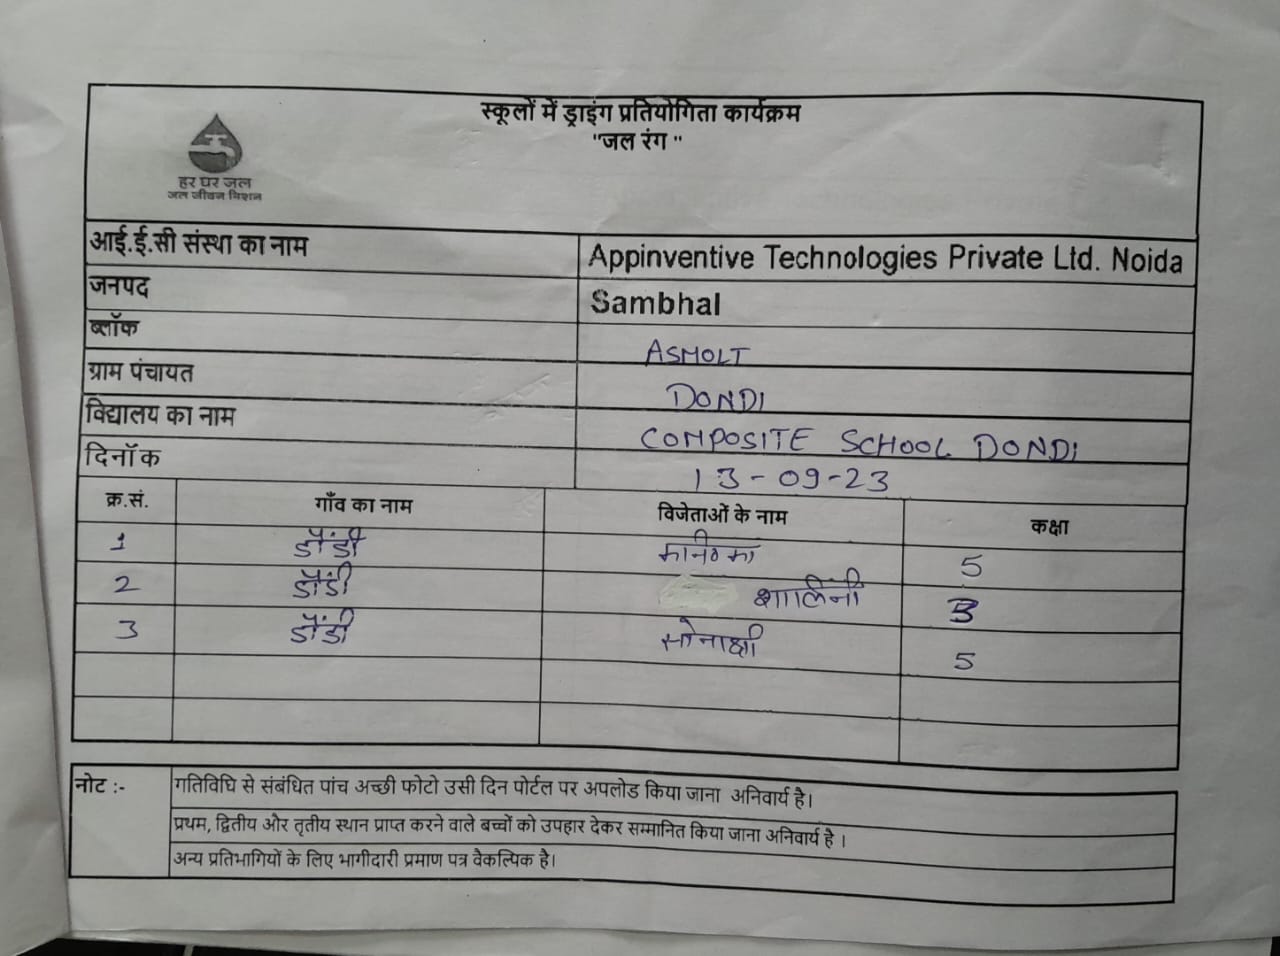 स्कूलों में ड्राइंग प्रतियोगिता कार्यक्रम
"जल रंग "
हर घर जल
जल जीवन मिशन
आई.ई.सी संस्था का नाम Appinventive Technologies Private Ltd. Noida
जनपद Sambhal
ब्लॉक ASMOLI
ग्राम पंचायत DONDI
विद्यालय का नाम COMPOSITE SCHOOL DONDI
दिनॉक 13-09-23
क्र.सं. गाँव का नाम विजेताओं के नाम कक्षा
1 डौंडी 5
2 डौंडी शालिनी
3 डौंडी सोनाक्षी 5
नोट :- गतिविधि से संबंधित पांच अच्छी फोटो उसी दिन पोर्टल पर अपलोड किया जाना अनिवार्य है।
प्रथम, द्वितीय और तृतीय स्थान प्राप्त करने वाले बच्चों को उपहार देकर सम्मानित किया जाना अनिवार्य है ।
अन्य प्रतिभागियों के लिए भागीदारी प्रमाण पत्र वैकल्पिक है।